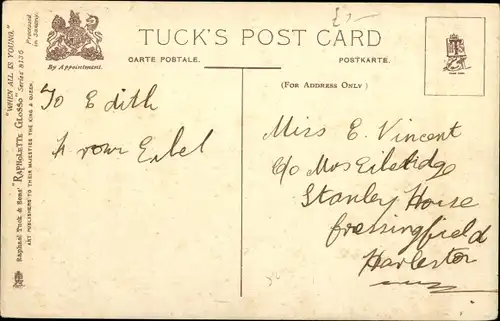 "WHEN ALL IS YOUNG."
Series 8136
Processed in Saxony.
Raphael Tuck & Sons' "RAPHOLETTE GLOSSO"
ART PUBLISHERS TO THEIR MAJESTIES THE KING & QUEEN.
By Appointment.
TUCK'S POST CARD
CARTE POSTALE.
POSTKARTE.
(FOR ADDRESS ONLY)
To Edith
From
Miss E. Vincent
c/o Mrs
Stanley House
Fressingfield
Harleston